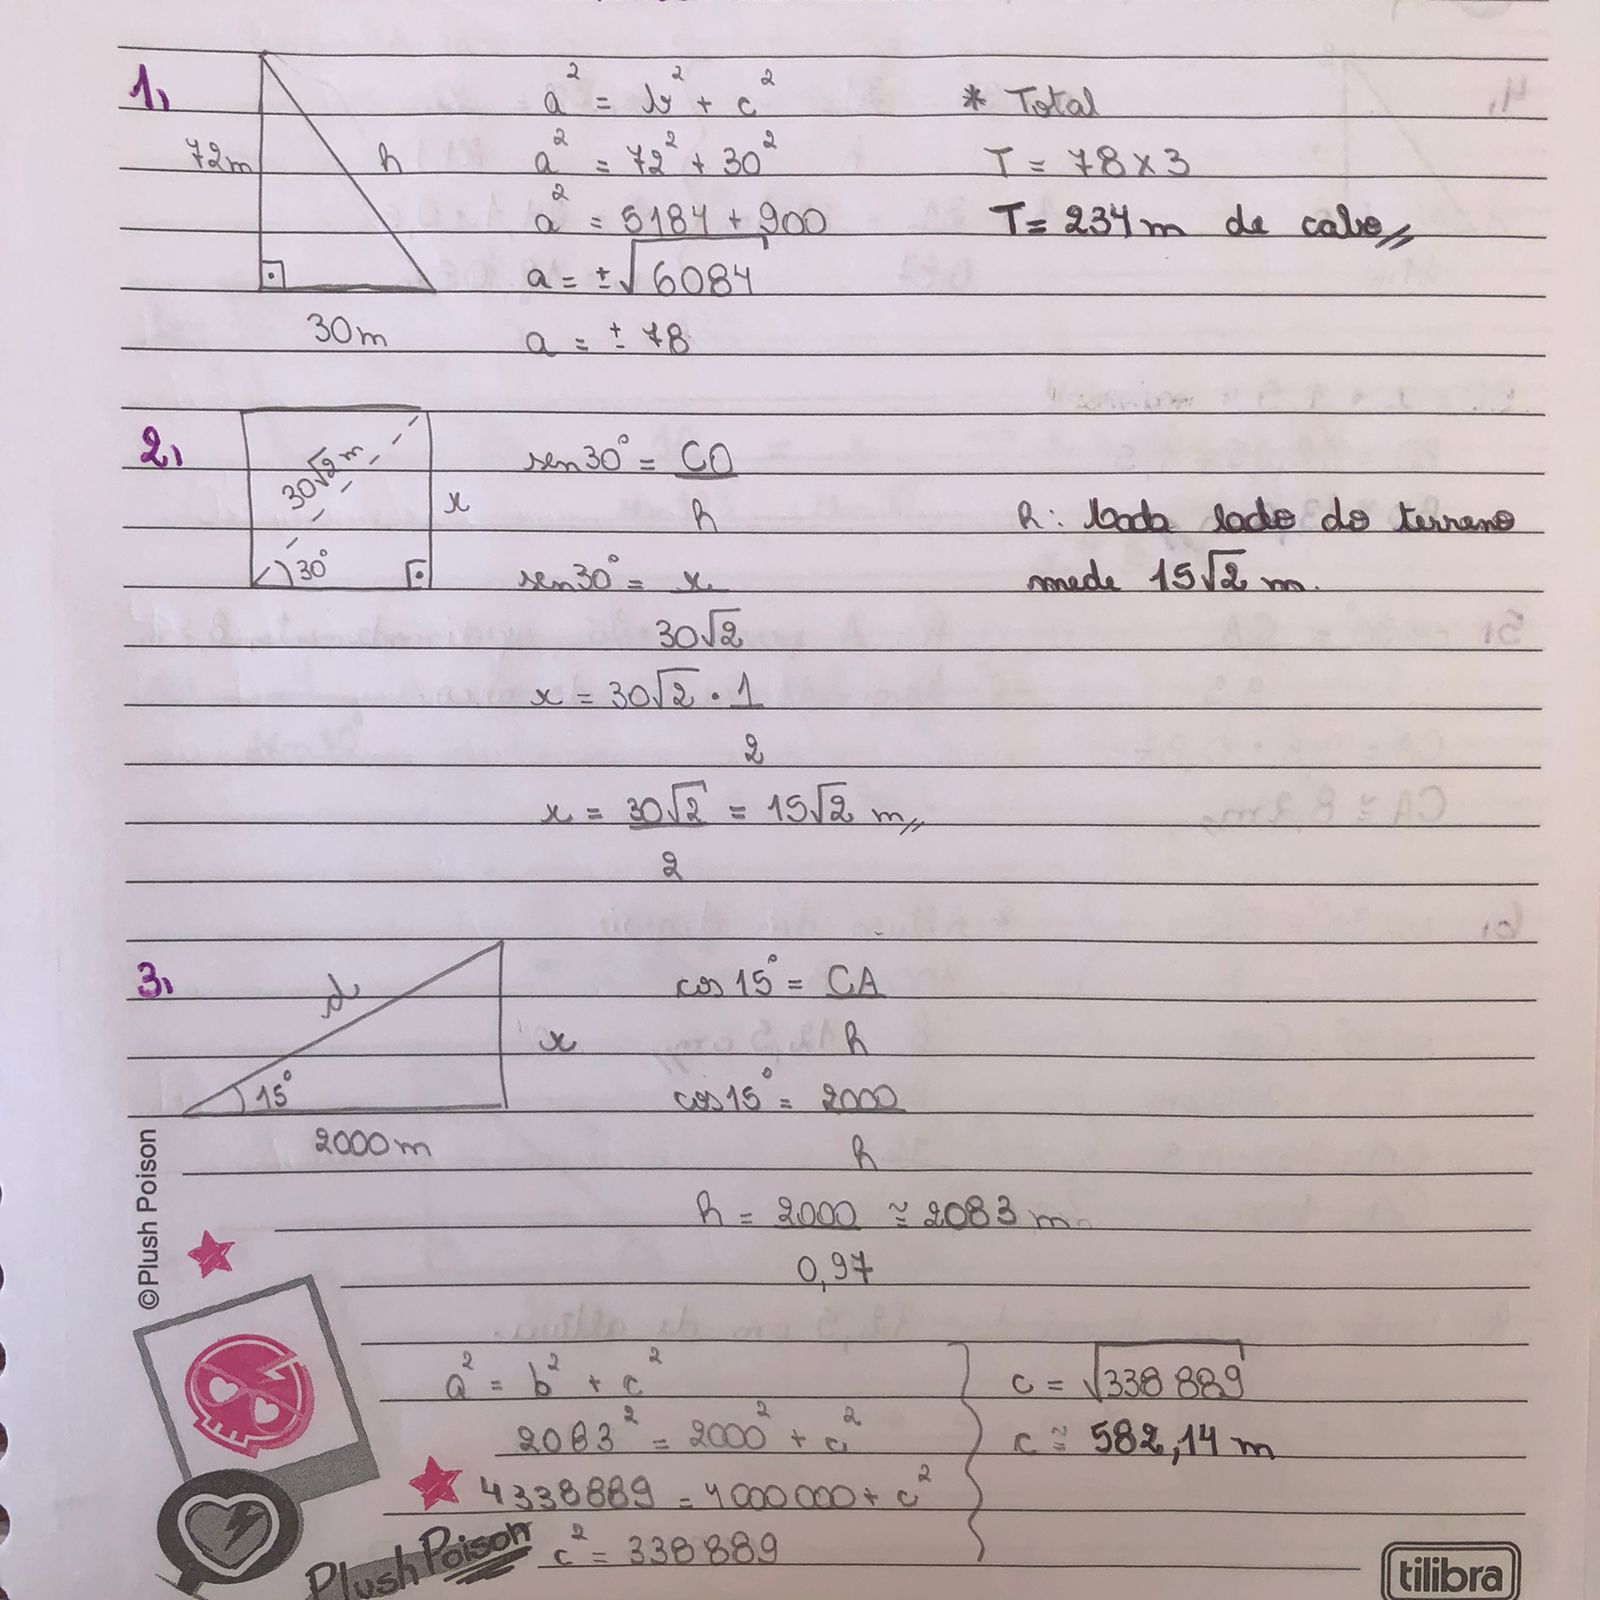 1,
72m
h
30m
a² = b² + c²
a² = 72² + 30²
a² = 5184 + 900
a = ±√6084
a = ± 78
* Total
T = 78 x 3
T = 234 m de cabo//
2,
30√2 m
x
30°
sen30° = CO
h
sen30° = x
30√2
x = 30√2 · 1
2
x = 30√2 = 15√2 m//
2
R: Cada lado do terreno
mede 15√2 m.
3,
d
x
15°
2000m
cos 15° = CA
h
cos15° = 2000
h
h = 2000 ≅ 2083 m
0,97
a² = b² + c²
2083² = 2000² + c²
4338889 = 4000000 + c²
c² = 338889
c = √338 889
c ≅ 582,14 m
©Plush Poison
Plush Poison
tilibra